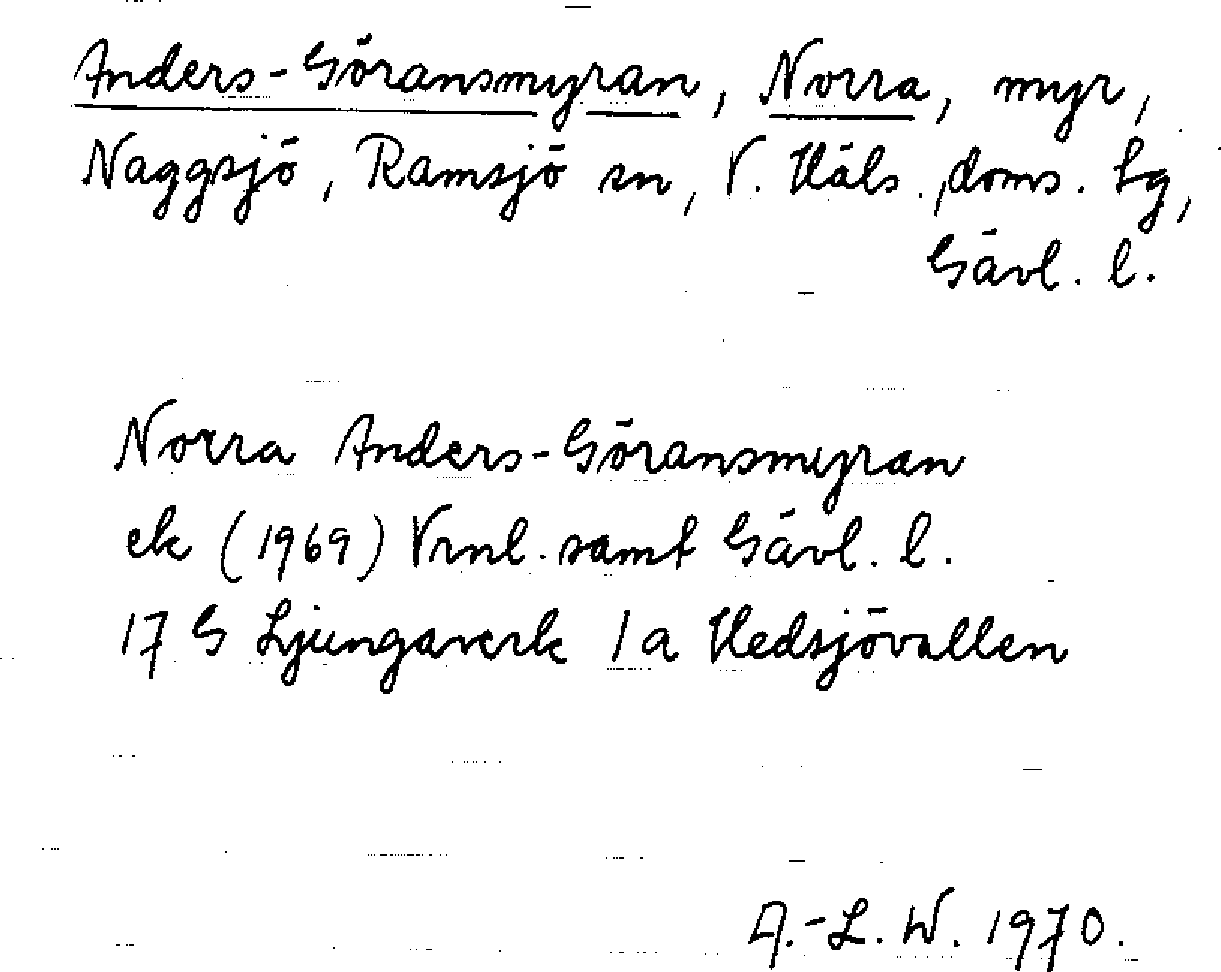 Anders-Göransmyran, Norra, myr,
Naggsjö, Ramsjö sn, V. Häls. doms. lg,
Gävl. l.
Norra Anders-Göransmyran
ek (1969) Vrnl. samt Gävl. l.
17 G Ljungaverk 1a Hedsjövallen
A.-L. W. 1970.